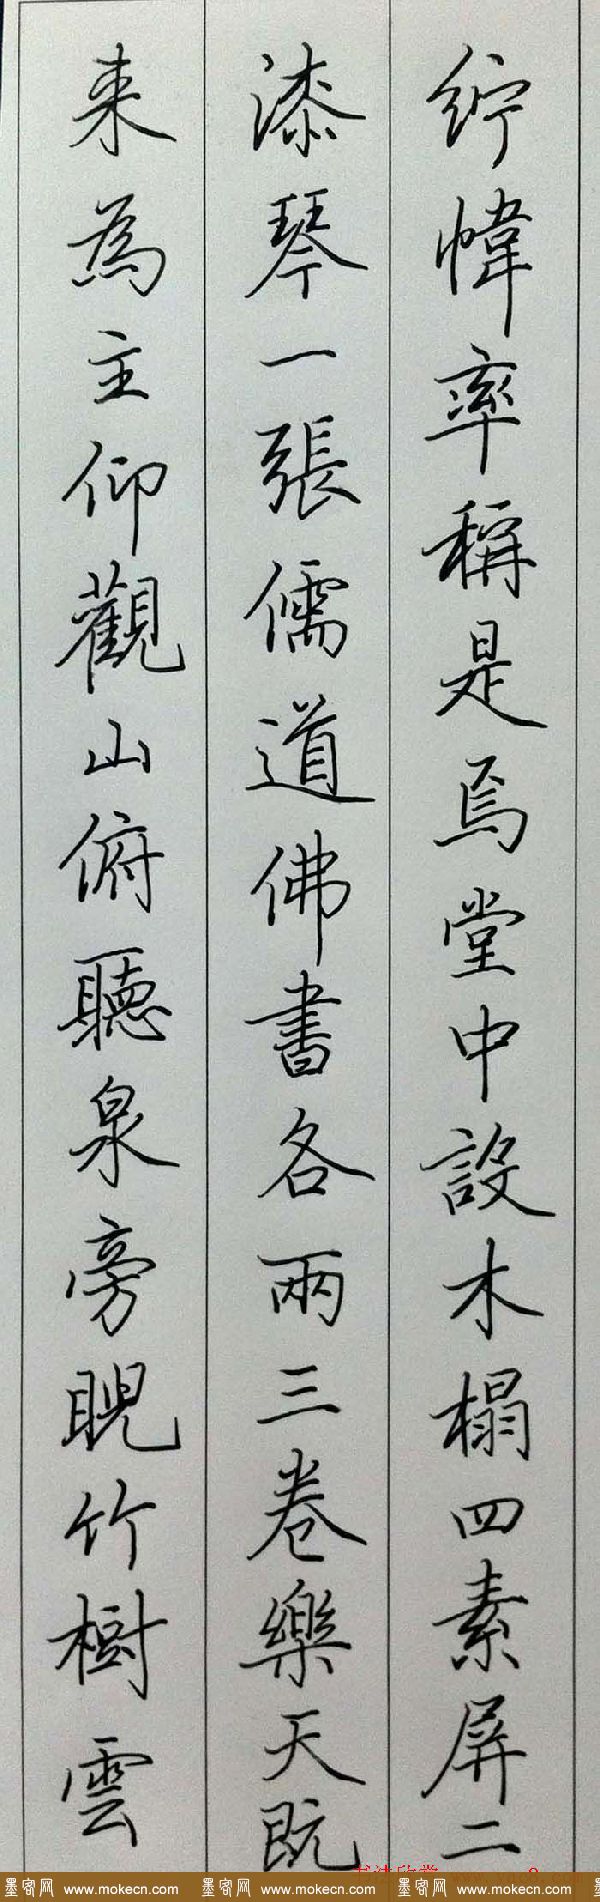 紵幃率稱是焉堂中設木榻四素屏二
漆琴一張儒道佛書各兩三卷樂天既
来為主仰觀山俯聽泉旁睨竹樹雲
墨密网 www.mokecn.com 墨密网 www.mokecn.com 墨密网 www.mokecn.com